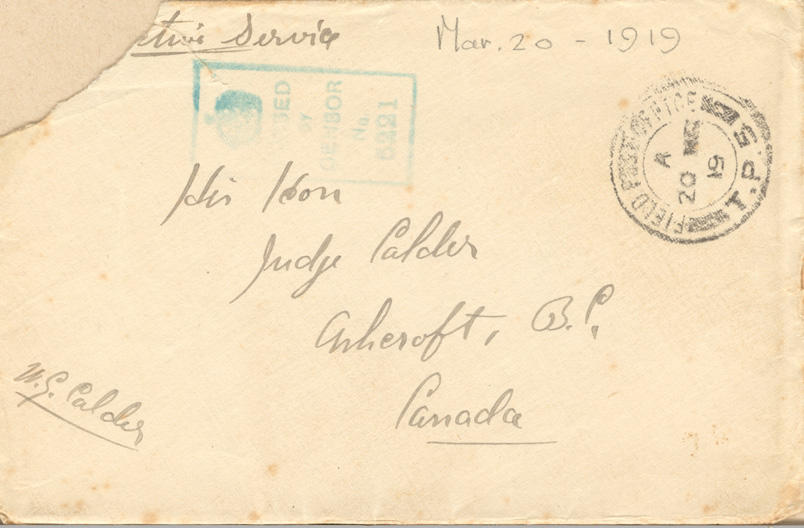 Active Service
Mar. 20 - 1919
PASSED
BY
CENSOR
No.
6221
FIELD POST OFFICE
T.P.5.
A
20
19
His Hon
Judge Calder
Ashcroft, B.C.
Canada
W.G. Calder